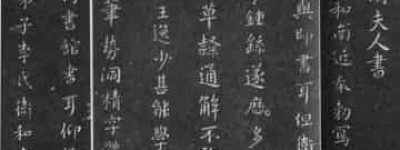 夫人書
和南近奉勅寫
與即書耳但衛
鍾繇遂歷多
草隸通解不
王逸少甚能學
筆勢洞精字
書館書耳仰
弟子李氏衛和